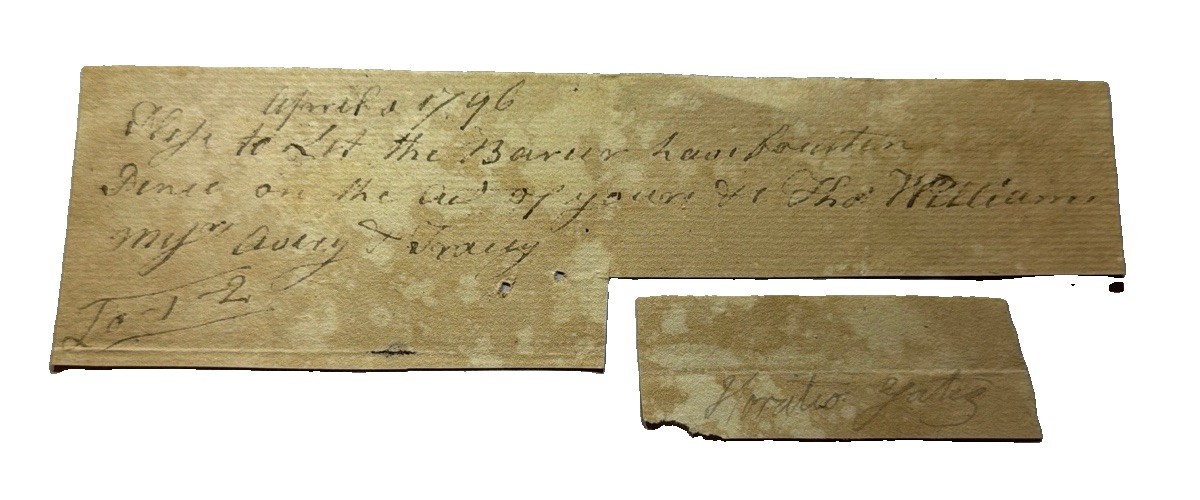 April 5 1796
Plese to Let the Barer have fourteen
Pence on the acct of yours &c Thos Williams
Messrs Avery & Tracy
To 1-2
Horatio Gates